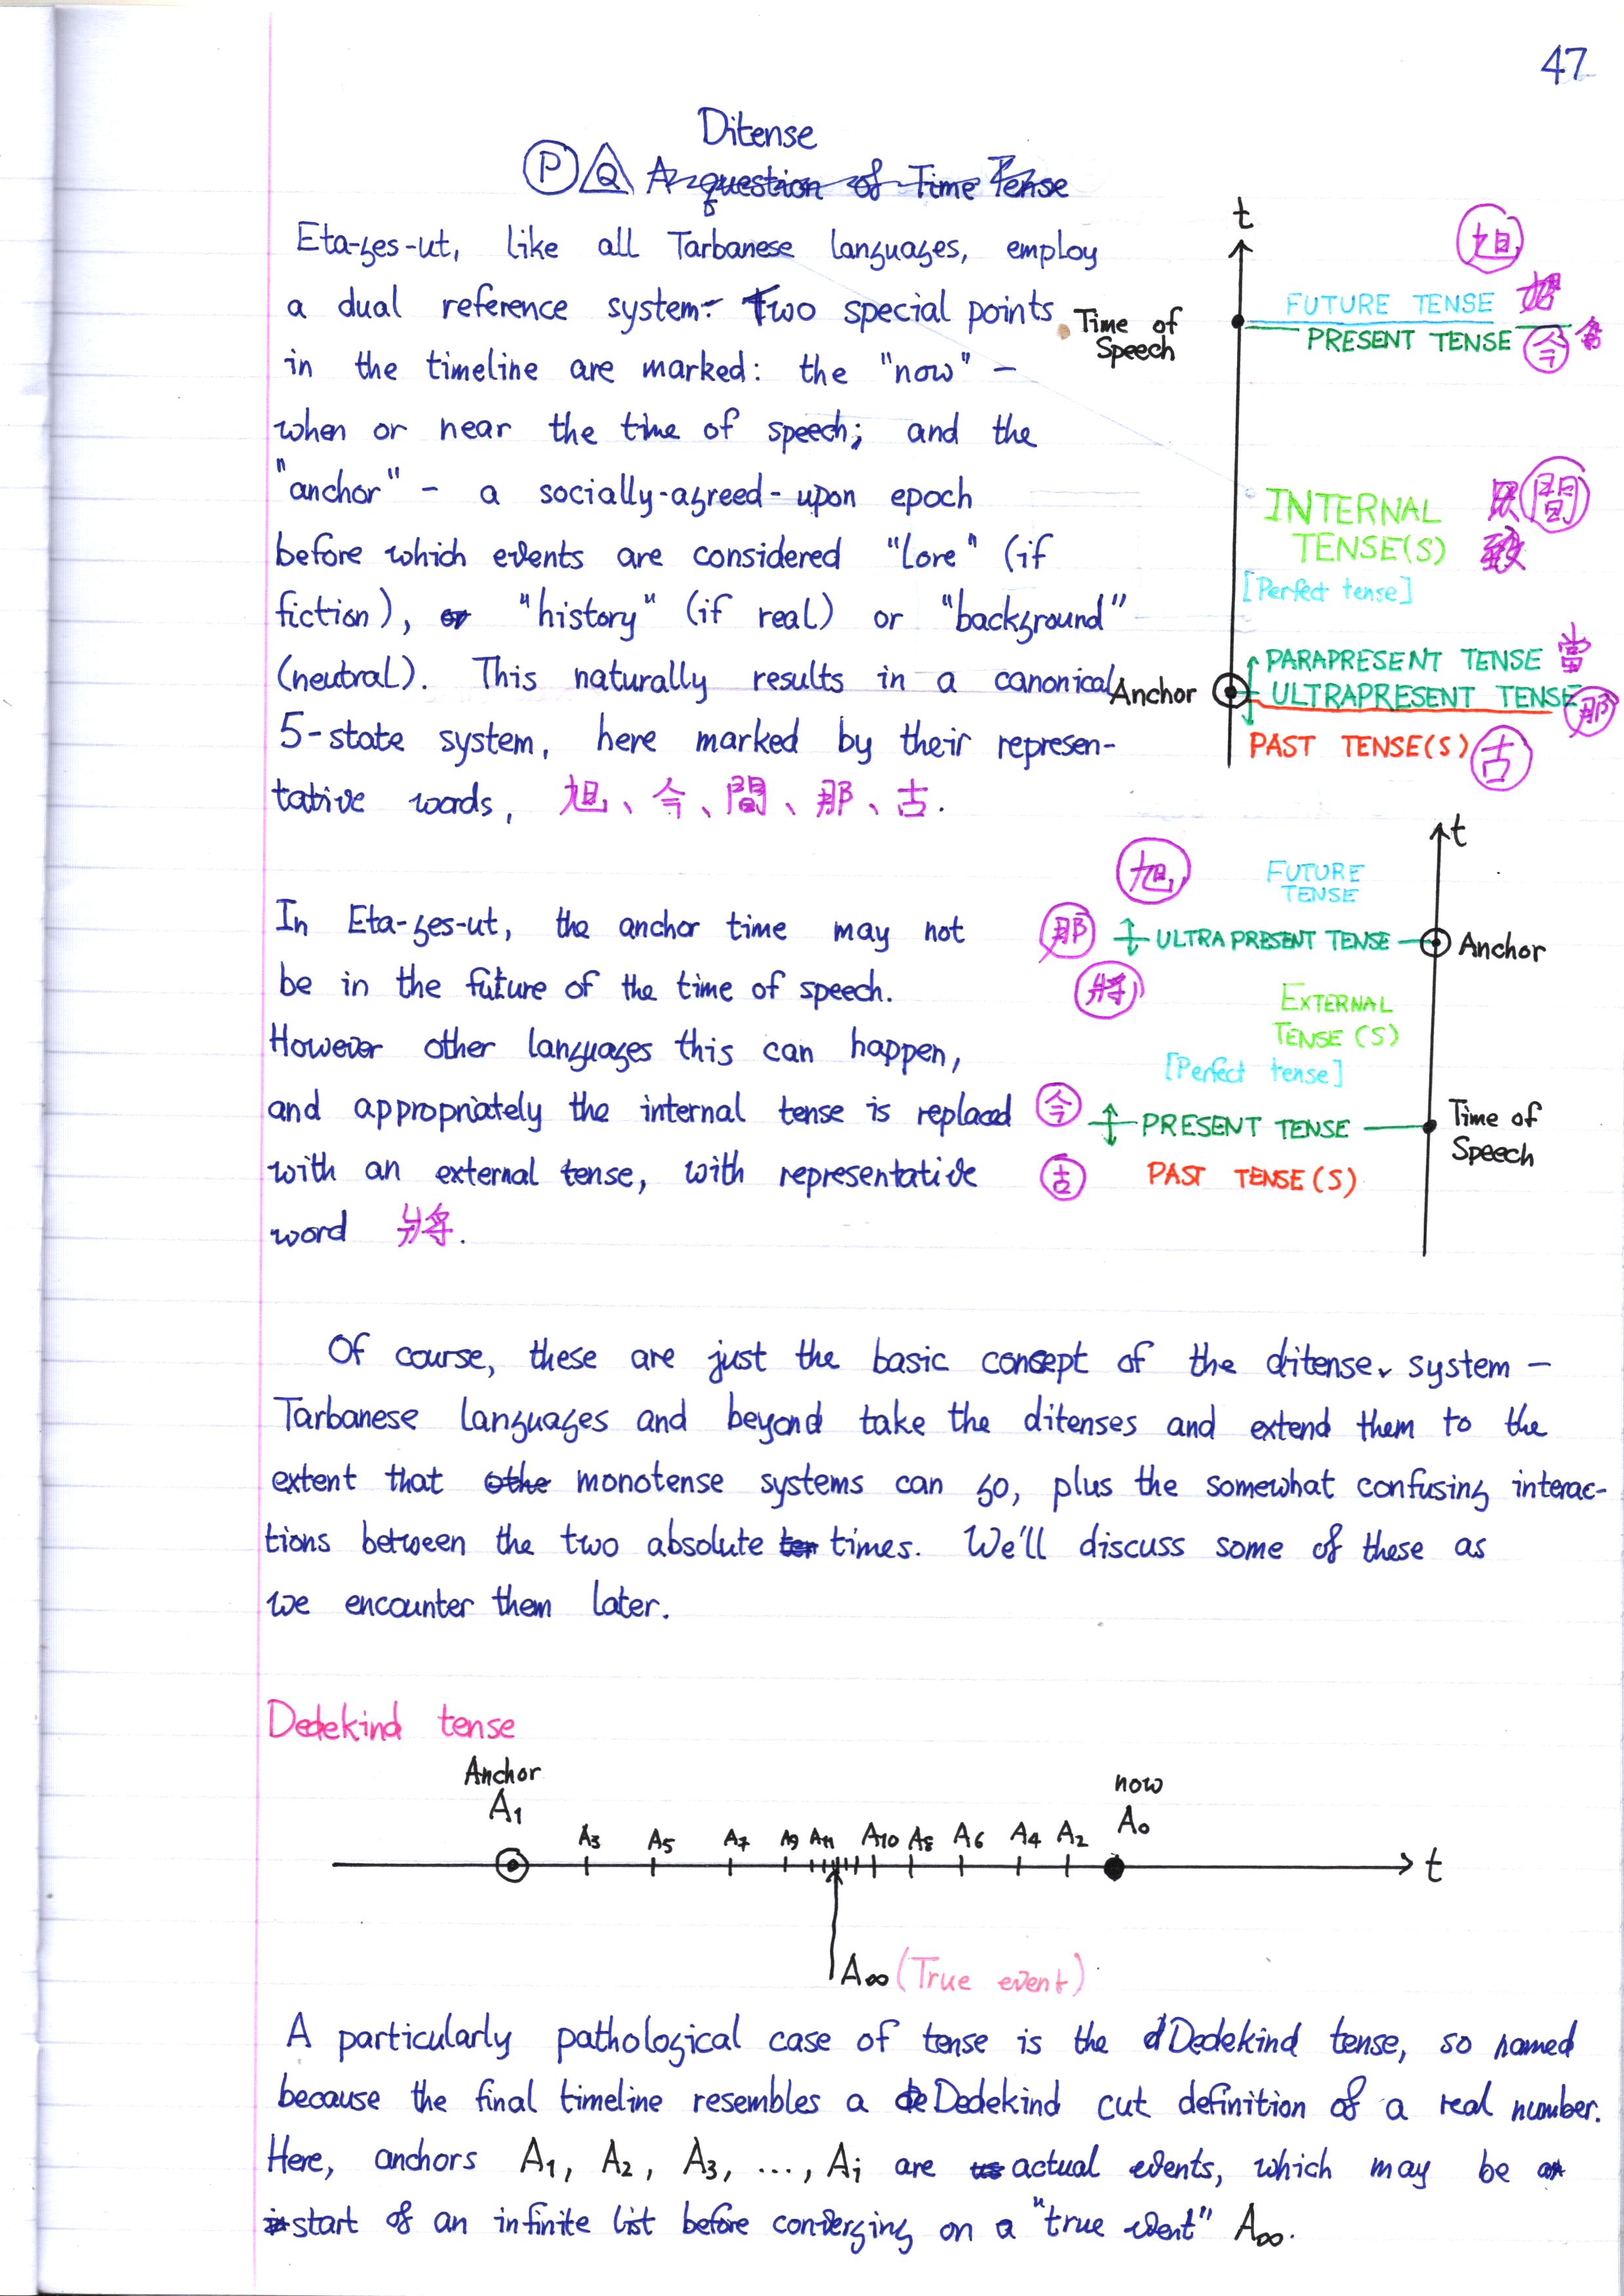 47
Ditense
P Q A question of Time Tense
Eta-ges-ut, like all Tarbanese languages, employ
a dual reference system- Two special points
in the timeline are marked: the "now" –
when or near the time of speech; and the
"anchor" – a socially-agreed-upon epoch
before which events are considered "lore" (if
fiction), or "history" (if real) or "background"
(neutral). This naturally results in a canonical
5-state system, here marked by their represen-
tative words, 旭、今、間、那、古.
t
旭
Time of Speech
FUTURE TENSE
PRESENT TENSE 今
INTERNAL 間
TENSE(S)
[Perfect tense]
PARAPRESENT TENSE 當
Anchor
ULTRAPRESENT TENSE 那
PAST TENSE(S) 古
In Eta-ges-ut, the anchor time may not
be in the future of the time of speech.
However other languages this can happen,
and appropriately the internal tense is replaced
with an external tense, with representative
word 將.
t
旭
FUTURE
TENSE
那 ULTRAPRESENT TENSE Anchor
將
EXTERNAL
TENSE(S)
[Perfect tense]
今 PRESENT TENSE Time of
Speech
古 PAST TENSE(S)
Of course, these are just the basic concept of the ditense system –
Tarbanese languages and beyond take the ditenses and extend them to the
extent that othe monotense systems can go, plus the somewhat confusing interac-
tions between the two absolute ten times. We'll discuss some of these as
we encounter them later.
Dedekind tense
Anchor
A1
now
A0
A3 A5 A7 A9 A11 A10 A8 A6 A4 A2
t
A∞ (True event)
A particularly pathological case of tense is the d Dedekind tense, so named
because the final timeline resembles a de Dedekind cut definition of a real number.
Here, anchors A1, A2, A3, ..., Ai are us actual events, which may be an
in start of an infinite list before converging on a "true event" A∞.